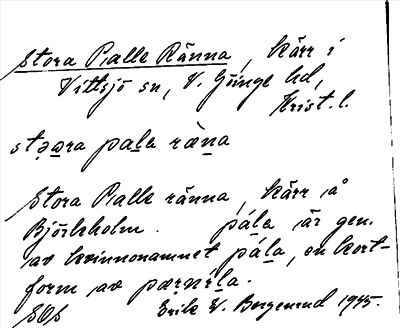 Stora Palle Ränna, kärr i
Vittsjö sn, V. Göinge hd,
Krist. l.
stəɷra pala ræna
Stora Palle ränna, kärr å
Björkholm. pála är gen.
av kvinnonamnet pála, en kort-
form av pærnila.
SOS Erik W. Bergenrud 1945.